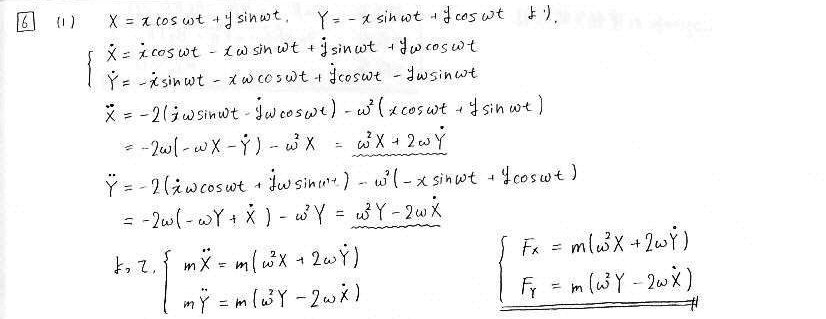 6 (1) X = x cos ωt + y sin ωt. Y = - x sin ωt + y cos ωt より.
{ Ẋ = ẋ cos ωt - xω sin ωt + ẏ sin ωt + yω cos ωt
Ẏ = -ẋ sin ωt - xω cos ωt + ẏ cos ωt - yω sin ωt
Ẍ = -2(ẋω sin ωt - ẏω cos ωt) - ω²(x cos ωt + y sin ωt)
= -2ω(-ωX - Ẏ) - ω²X = ω²X + 2ωẎ
Ÿ = -2(ẋω cos ωt + ẏω sin ωt) - ω²(-x sin ωt + y cos ωt)
= -2ω(-ωY + Ẋ) - ω²Y = ω²Y - 2ωẊ
よって, { mẌ = m(ω²X + 2ωẎ)
mŸ = m(ω²Y - 2ωẊ)
{ Fx = m(ω²X + 2ωẎ)
FY = m(ω²Y - 2ωẊ)